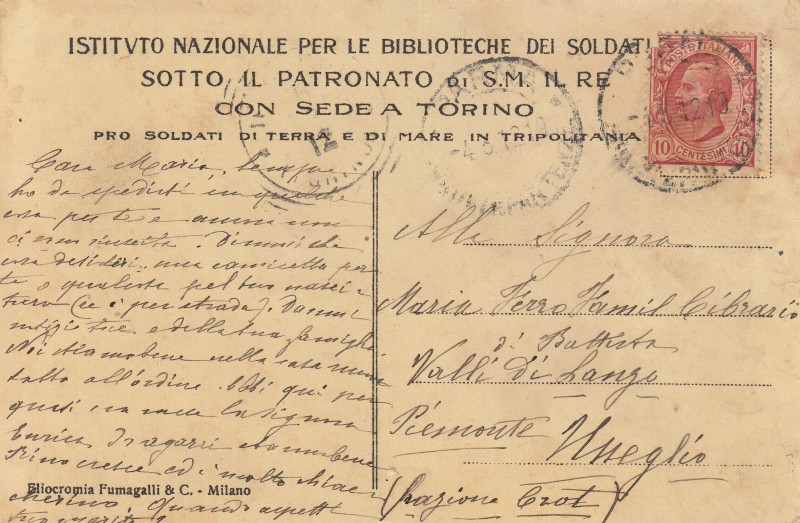 ISTITVTO NAZIONALE PER LE BIBLIOTECHE DEI SOLDATI
SOTTO IL PATRONATO DI S.M. IL RE
CON SEDE A TORINO
PRO SOLDATI DI TERRA E DI MARE IN TRIPOLITANIA
POSTE ITALIANE
10 CENTESIMI 10
12
-4 8 12
Cara Maria,
ho da spedirti in qualche
cosa per te e ancora non
ci sono riuscita. Dimmi che
cosa desideri, una camicetta per
te o qualcosa pel tuo nasci
turo (se è per strada). Dammi
notizie tue e della tua famiglia
Noi stiamo bene nella casa
tutto all'ordine. qui per
la signora
Enrica ragazzi stanno bene
cresce ed è molto chiac
cherino. Quando aspett
Alla Signora
Maria Ferro Famil Cibrario
di Battista
Valli di Lanzo
Piemonte Usseglio
(frazione Crot)
Eliocromia Fumagalli & C. - Milano